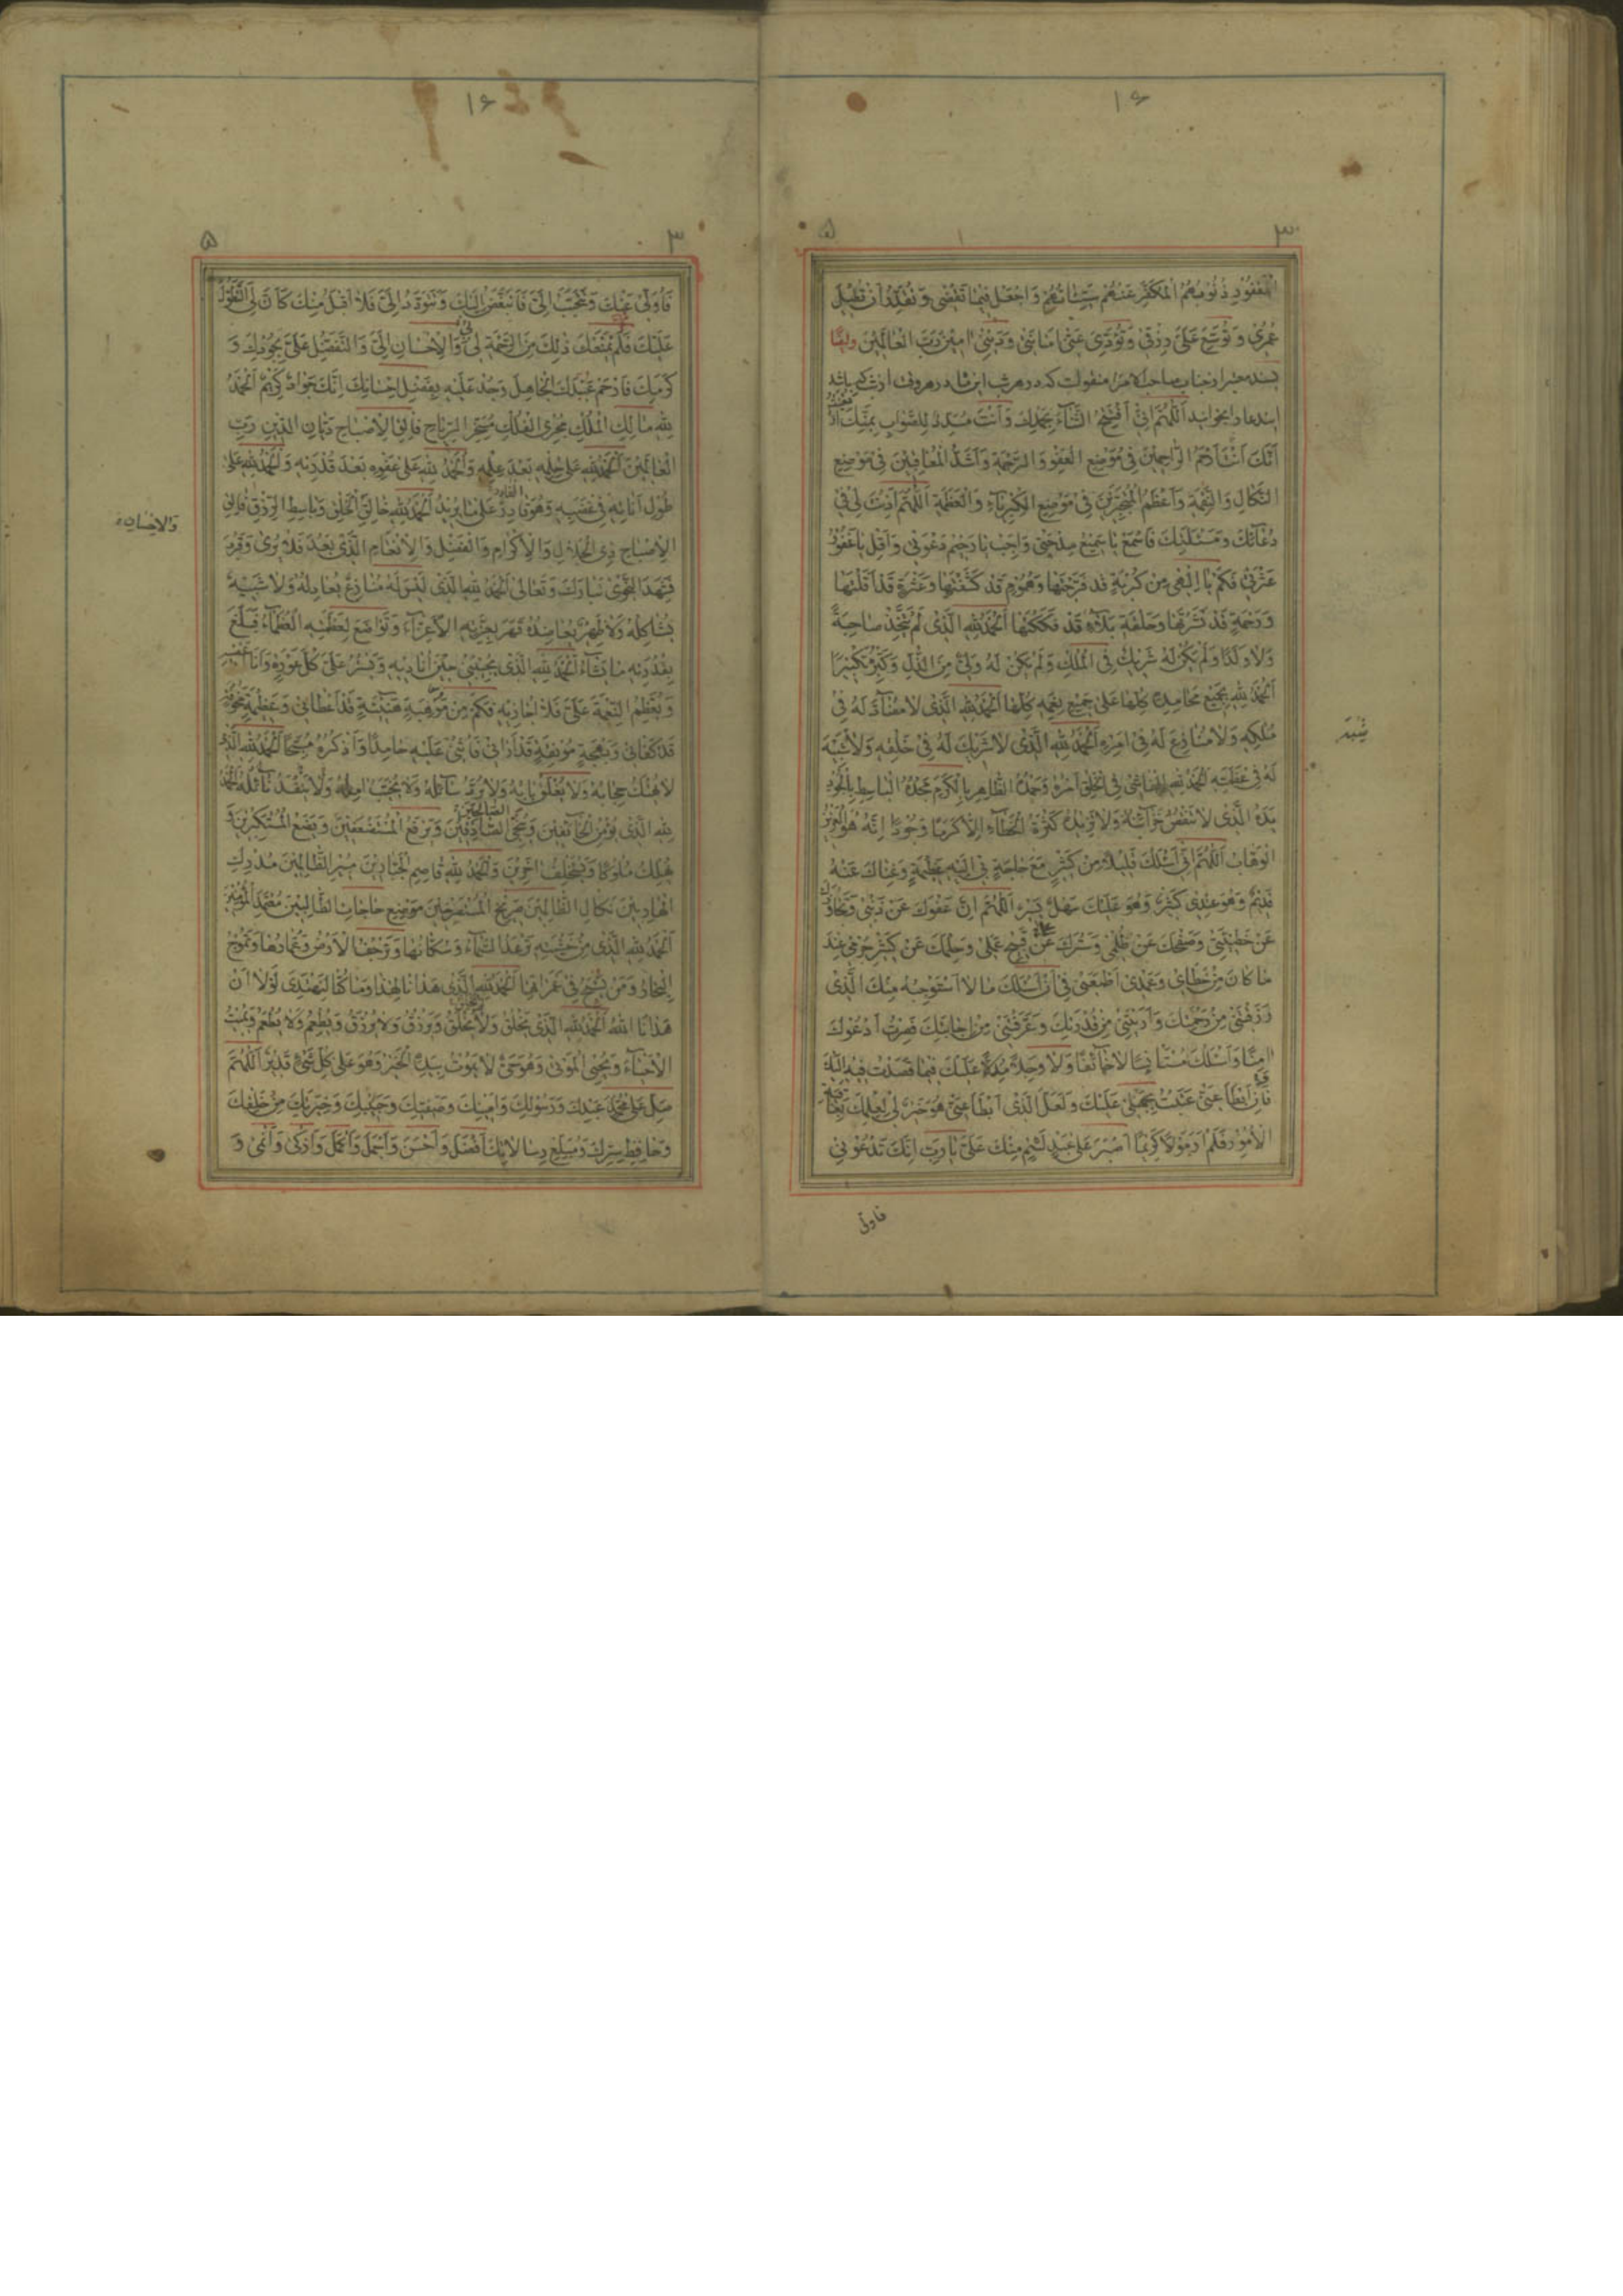 ۱۶
۳ ۵
الْمَغْفُورِ ذُنُوبُهُمُ الْمُكَفَّرِ عَنْهُمْ سَيِّئَاتُهُمْ وَاجْعَلْ فِيمَا تَقْضِي وَتُقَدِّرُ أَنْ تُطِيلَ
عُمْرِي وَتُوَسِّعَ عَلَيَّ رِزْقِي وَتُؤَدِّيَ عَنِّي أَمَانَتِي وَدَيْنِي آمِينَ رَبَّ الْعَالَمِينَ وايضًا
بسند معتبر از جناب صاحب الامر منقولست كه در هر شب
اين دعا را بخوانيد اَللّٰهُمَّ اِنّي أَفْتَتِحُ الثَّنَاءَ بِحَمْدِكَ وَأَنْتَ مُسَدِّدٌ لِلصَّوَابِ بِمَنِّكَ أَيْقَنْتُ
أَنَّكَ أَنْتَ أَرْحَمُ الرَّاحِمِينَ فِي مَوْضِعِ الْعَفْوِ وَالرَّحْمَةِ وَأَشَدُّ الْمُعَاقِبِينَ فِي مَوْضِعِ
النَّكَالِ وَالنَّقِمَةِ وَأَعْظَمُ الْمُتَجَبِّرِينَ فِي مَوْضِعِ الْكِبْرِيَاءِ وَالْعَظَمَةِ اَللّٰهُمَّ أَذِنْتَ لِي فِي
دُعَائِكَ وَمَسْئَلَتِكَ فَاسْمَعْ يَا سَمِيعُ مِدْحَتِي وَأَجِبْ يَا رَحِيمُ دَعْوَتِي وَأَقِلْ يَا غَفُورُ
عَثْرَتِي فَكَمْ يَا إِلٰهِي مِنْ كُرْبَةٍ قَدْ فَرَّجْتَهَا وَهُمُومٍ قَدْ كَشَفْتَهَا وَعَثْرَةٍ قَدْ أَقَلْتَهَا
وَرَحْمَةٍ قَدْ نَشَرْتَهَا وَحَلْقَةِ بَلَاءٍ قَدْ فَكَكْتَهَا اَلْحَمْدُ لِلّٰهِ الَّذِي لَمْ يَتَّخِذْ صَاحِبَةً
وَلَا وَلَدًا وَلَمْ يَكُنْ لَهُ شَرِيكٌ فِي الْمُلْكِ وَلَمْ يَكُنْ لَهُ وَلِيٌّ مِنَ الذُّلِّ وَكَبِّرْهُ تَكْبِيرًا
اَلْحَمْدُ لِلّٰهِ بِجَمِيعِ مَحَامِدِهِ كُلِّهَا عَلَى جَمِيعِ نِعَمِهِ كُلِّهَا اَلْحَمْدُ لِلّٰهِ الَّذِي لَا مُضَادَّ لَهُ فِي
مُلْكِهِ وَلَا مُنَازِعَ لَهُ فِي أَمْرِهِ اَلْحَمْدُ لِلّٰهِ الَّذِي لَا شَرِيكَ لَهُ فِي خَلْقِهِ وَلَا شِبْهَ
لَهُ فِي عَظَمَتِهِ اَلْحَمْدُ لِلّٰهِ الْفَاشِي فِي الْخَلْقِ أَمْرُهُ وَحَمْدُهُ الظَّاهِرِ بِالْكَرَمِ مَجْدُهُ الْبَاسِطِ بِالْجُودِ
يَدَهُ الَّذِي لَا تَنْقُصُ خَزَائِنُهُ وَلَا تَزِيدُهُ كَثْرَةُ الْعَطَاءِ إِلَّا كَرَمًا وَجُودًا إِنَّهُ هُوَ الْعَزِيزُ
الْوَهَّابُ اَللّٰهُمَّ إِنِّي أَسْئَلُكَ قَلِيلًا مِنْ كَثِيرٍ مَعَ حَاجَةٍ بِي إِلَيْهِ عَظِيمَةٍ وَغِنَاكَ عَنْهُ
قَدِيمٌ وَهُوَ عِنْدِي كَثِيرٌ وَهُوَ عَلَيْكَ سَهْلٌ يَسِيرٌ اَللّٰهُمَّ إِنَّ عَفْوَكَ عَنْ ذَنْبِي وَتَجَاوُزَكَ
عَنْ خَطِيئَتِي وَصَفْحَكَ عَنْ ظُلْمِي وَسَتْرَكَ عَنْ قَبِيحِ عَمَلِي وَحِلْمَكَ عَنْ كَثِيرِ جُرْمِي عِنْدَ
مَا كَانَ مِنْ خَطَائِي وَعَمْدِي أَطْمَعَنِي فِي أَنْ أَسْئَلَكَ مَا لَا أَسْتَوْجِبُهُ مِنْكَ الَّذِي
رَزَقْتَنِي مِنْ رَحْمَتِكَ وَأَرَيْتَنِي مِنْ قُدْرَتِكَ وَعَرَّفْتَنِي مِنْ إِجَابَتِكَ فَصِرْتُ أَدْعُوكَ
آمِنًا وَأَسْئَلُكَ مُسْتَأْنِسًا لَا خَائِفًا وَلَا وَجِلًا مُدِلًّا عَلَيْكَ فِيمَا قَصَدْتُ فِيهِ إِلَيْكَ
فَإِنْ أَبْطَأَ عَنِّي عَتَبْتُ بِجَهْلِي عَلَيْكَ وَلَعَلَّ الَّذِي أَبْطَأَ عَنِّي هُوَ خَيْرٌ لِي لِعِلْمِكَ بِعَاقِبَةِ
الْأُمُورِ فَلَمْ أَرَ مَوْلًى كَرِيمًا أَصْبَرَ عَلَى عَبْدٍ لَئِيمٍ مِنْكَ عَلَيَّ يَا رَبِّ إِنَّكَ تَدْعُونِي
فاولی
۱۶
۳ ۵
فَأُوَلِّي عَنْكَ وَتَتَحَبَّبُ إِلَيَّ فَأَتَبَغَّضُ إِلَيْكَ وَتَتَوَدَّدُ إِلَيَّ فَلَا أَقْبَلُ مِنْكَ كَأَنَّ لِيَ التَّطَوُّلَ
عَلَيْكَ فَلَمْ يَمْنَعْكَ ذٰلِكَ مِنَ الرَّحْمَةِ لِي وَالْإِحْسَانِ إِلَيَّ وَالتَّفَضُّلِ عَلَيَّ بِجُودِكَ وَ
كَرَمِكَ فَارْحَمْ عَبْدَكَ الْجَاهِلَ وَجُدْ عَلَيْهِ بِفَضْلِ إِحْسَانِكَ إِنَّكَ جَوَادٌ كَرِيمٌ اَلْحَمْدُ
لِلّٰهِ مَالِكِ الْمُلْكِ مُجْرِي الْفُلْكِ مُسَخِّرِ الرِّيَاحِ فَالِقِ الْإِصْبَاحِ دَيَّانِ الدِّينِ رَبِّ
الْعَالَمِينَ اَلْحَمْدُ لِلّٰهِ عَلَى حِلْمِهِ بَعْدَ عِلْمِهِ وَالْحَمْدُ لِلّٰهِ عَلَى عَفْوِهِ بَعْدَ قُدْرَتِهِ وَالْحَمْدُ لِلّٰهِ عَلَى
طُولِ أَنَاتِهِ فِي غَضَبِهِ وَهُوَ قَادِرٌ عَلَى مَا يُرِيدُ اَلْحَمْدُ لِلّٰهِ خَالِقِ الْخَلْقِ وَبَاسِطِ الرِّزْقِ فَالِقِ
وَالْإِحْسَانِ
الْإِصْبَاحِ ذِي الْجَلَالِ وَالْإِكْرَامِ وَالْفَضْلِ وَالْإِنْعَامِ الَّذِي بَعُدَ فَلَا يُرَى وَقَرُبَ
فَشَهِدَ النَّجْوَى تَبَارَكَ وَتَعَالَى اَلْحَمْدُ لِلّٰهِ الَّذِي لَيْسَ لَهُ مُنَازِعٌ يُعَادِلُهُ وَلَا شَبِيهٌ
يُشَاكِلُهُ وَلَا ظَهِيرٌ يُعَاضِدُهُ قَهَرَ بِعِزَّتِهِ الْأَعِزَّاءَ وَتَوَاضَعَ لِعَظَمَتِهِ الْعُظَمَاءُ فَبَلَغَ
بِقُدْرَتِهِ مَا يَشَاءُ اَلْحَمْدُ لِلّٰهِ الَّذِي يُجِيبُنِي حِينَ أُنَادِيهِ وَيَسْتُرُ عَلَيَّ كُلَّ عَوْرَةٍ وَأَنَا أَعْصِيهِ
وَيُعَظِّمُ النِّعْمَةَ عَلَيَّ فَلَا أُجَازِيهِ فَكَمْ مِنْ مَوْهِبَةٍ هَنِيئَةٍ قَدْ أَعْطَانِي وَعَظِيمَةٍ مَخُوفَةٍ
قَدْ كَفَانِي وَبَهْجَةٍ مُونِقَةٍ قَدْ أَرَانِي فَأُثْنِي عَلَيْهِ حَامِدًا وَأَذْكُرُهُ مُسَبِّحًا اَلْحَمْدُ لِلّٰهِ الَّذِي
لَا يُهْتَكُ حِجَابُهُ وَلَا يُغْلَقُ بَابُهُ وَلَا يُرَدُّ سَائِلُهُ وَلَا يُخَيَّبُ آمِلُهُ وَلَا يَنْفَدُ نَائِلُهُ اَلْحَمْدُ
لِلّٰهِ الَّذِي يُؤْمِنُ الْخَائِفِينَ وَيُنَجِّي الصَّادِقِينَ وَيَرْفَعُ الْمُسْتَضْعَفِينَ وَيَضَعُ الْمُسْتَكْبِرِينَ وَ
يُهْلِكُ مُلُوكًا وَيَسْتَخْلِفُ آخَرِينَ وَالْحَمْدُ لِلّٰهِ قَاصِمِ الْجَبَّارِينَ مُبِيرِ الظَّالِمِينَ مُدْرِكِ
الْهَارِبِينَ نَكَالِ الظَّالِمِينَ صَرِيخِ الْمُسْتَصْرِخِينَ مَوْضِعِ حَاجَاتِ الطَّالِبِينَ مُعْتَمَدِ الْمُؤْمِنِينَ
اَلْحَمْدُ لِلّٰهِ الَّذِي مِنْ خَشْيَتِهِ تَرْعَدُ السَّمَاءُ وَسُكَّانُهَا وَتَرْجُفُ الْأَرْضُ وَعُمَّارُهَا وَتَمُوجُ
الْبِحَارُ وَمَنْ يَسْبَحُ فِي غَمَرَاتِهَا اَلْحَمْدُ لِلّٰهِ الَّذِي هَدَانَا لِهٰذَا وَمَا كُنَّا لِنَهْتَدِيَ لَوْلَا أَنْ
هَدَانَا اللّٰهُ اَلْحَمْدُ لِلّٰهِ الَّذِي يَخْلُقُ وَلَا يُخْلَقُ وَيَرْزُقُ وَلَا يُرْزَقُ وَيُطْعِمُ وَلَا يُطْعَمُ وَيُمِيتُ
الْأَحْيَاءَ وَيُحْيِي الْمَوْتَى وَهُوَ حَيٌّ لَا يَمُوتُ بِيَدِهِ الْخَيْرُ وَهُوَ عَلَى كُلِّ شَيْءٍ قَدِيرٌ اَللّٰهُمَّ
صَلِّ عَلَى مُحَمَّدٍ عَبْدِكَ وَرَسُولِكَ وَأَمِينِكَ وَصَفِيِّكَ وَحَبِيبِكَ وَخِيَرَتِكَ مِنْ خَلْقِكَ
وَحَافِظِ سِرِّكَ وَمُبَلِّغِ رِسَالَاتِكَ أَفْضَلَ وَأَحْسَنَ وَأَجْمَلَ وَأَكْمَلَ وَأَزْكَى وَأَنْمَى وَ